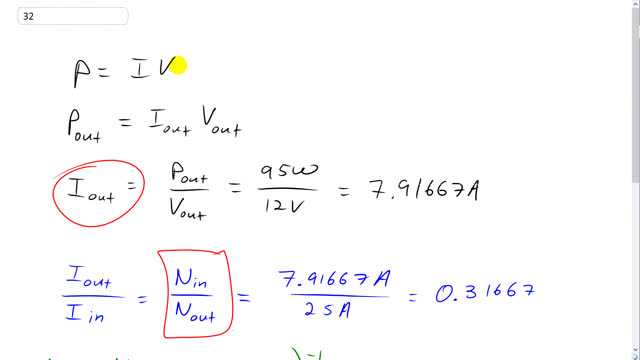 32
P = I V
P out = I out V out
I out = P out / V out = 95W / 12V = 7.91667A
I out / I in = N in / N out = 7.91667A / 25A = 0.31667